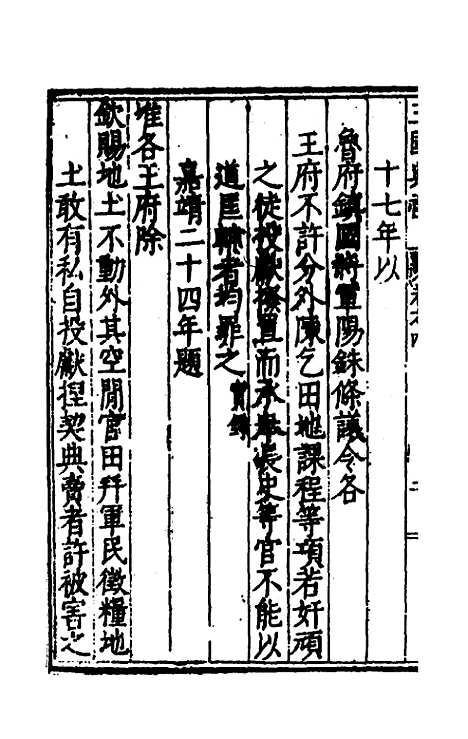 十七年以
魯府鎮國將軍陽鉌條議令各
王府不許分外陳乞田地課程等項若奸頑
之徒投獻撥置而承奉長史等官不能以
道匡輔者均罪之實錄
嘉靖二十四年題
准各王府除
欽賜地土不動外其空閒官田幷軍民徵糧地
土敢有私自投獻捏契典賣者許被害之